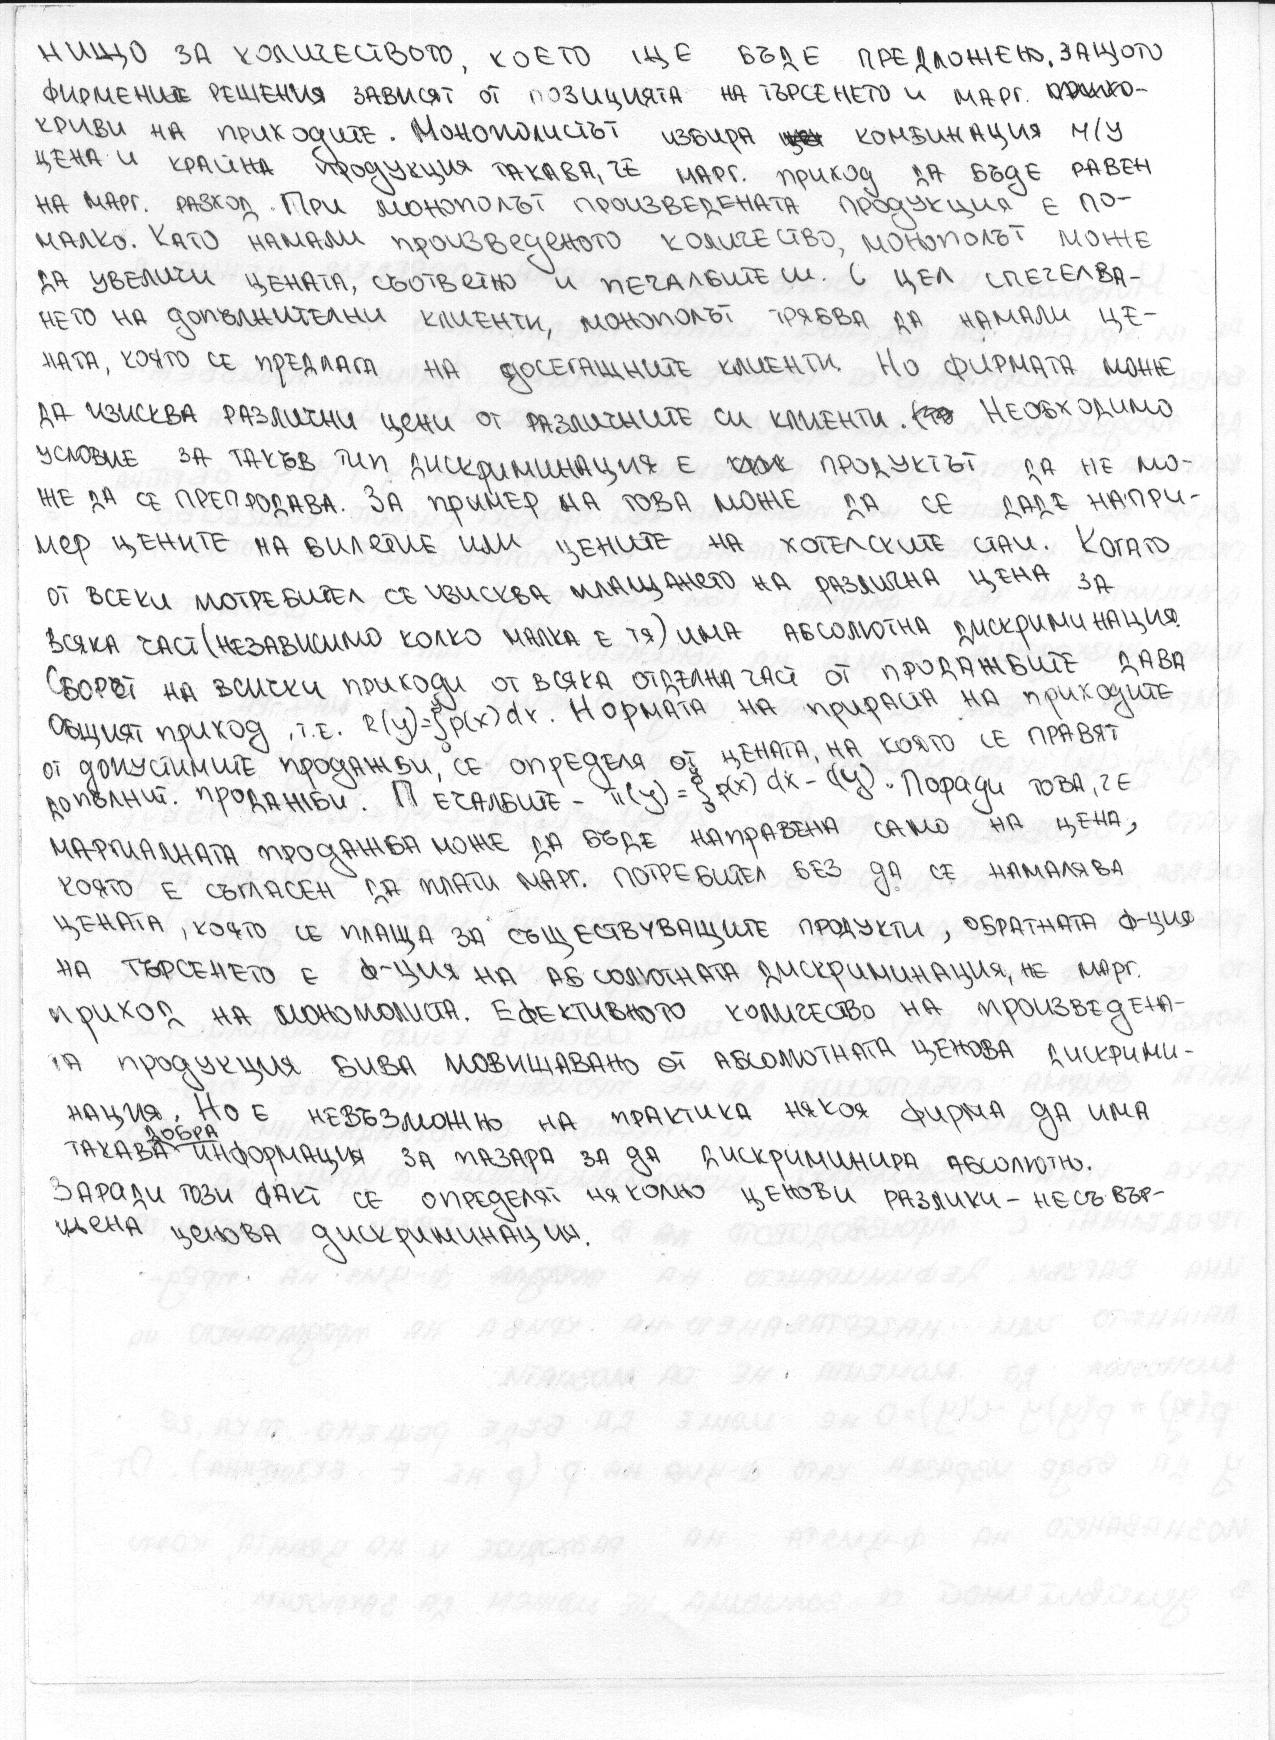 НИЩО ЗА КОЛИЧЕСТВОТО, КОЕТО ЩЕ БЪДЕ ПРЕДЛОЖЕНО, ЗАЩОТО
ФИРМЕНИТЕ РЕШЕНИЯ ЗАВИСЯТ ОТ ПОЗИЦИЯТА НА ТЪРСЕНЕТО И МАРГ.
КРИВИ НА ПРИХОДИТЕ. МОНОПОЛИСТЪТ ИЗБИРА КОМБИНАЦИЯ М/У
ЦЕНА И КРАЙНА ПРОДУКЦИЯ ТАКАВА, ЧЕ МАРГ. ПРИХОД ДА БЪДЕ РАВЕН
НА МАРГ. РАЗХОД. ПРИ МОНОПОЛЪТ ПРОИЗВЕДЕНАТА ПРОДУКЦИЯ Е ПО-
МАЛКО. КАТО НАМАЛИ ПРОИЗВЕДЕНОТО КОЛИЧЕСТВО, МОНОПОЛЪТ МОЖЕ
ДА УВЕЛИЧИ ЦЕНАТА, СЪОТВЕТНО И ПЕЧАЛБИТЕ СИ. С ЦЕЛ СПЕЧЕЛВА-
НЕТО НА ДОПЪЛНИТЕЛНИ КЛИЕНТИ, МОНОПОЛЪТ ТРЯБВА ДА НАМАЛИ ЦЕ-
НАТА, КОЯТО СЕ ПРЕДЛАГА НА ДОСЕГАШНИТЕ КЛИЕНТИ. НО ФИРМАТА МОЖЕ
ДА ИЗИСКВА РАЗЛИЧНИ ЦЕНИ ОТ РАЗЛИЧНИТЕ СИ КЛИЕНТИ. НЕОБХОДИМО
УСЛОВИЕ ЗА ТАКЪВ ТИП ДИСКРИМИНАЦИЯ Е ПРОДУКТЪТ ДА НЕ МО-
ЖЕ ДА СЕ ПРЕПРОДАВА. ЗА ПРИМЕР НА ТОВА МОЖЕ ДА СЕ ДАДЕ НАПРИ-
МЕР ЦЕНИТЕ НА БИЛЕТИЕ ИЛИ ЦЕНИТЕ НА ХОТЕЛСКИТЕ СТАИ. КОГАТО
ОТ ВСЕКИ ПОТРЕБИТЕЛ СЕ ИЗИСКВА ПЛАЩАНЕТО НА РАЗЛИЧНА ЦЕНА ЗА
ВСЯКА ЧАСТ (НЕЗАВИСИМО КОЛКО МАЛКА Е ТЯ) ИМА АБСОЛЮТНА ДИСКРИМИНАЦИЯ.
СБОРЪТ НА ВСИЧКИ ПРИХОДИ ОТ ВСЯКА ОТДЕЛНА ЧАСТ ОТ ПРОДАЖБИТЕ ДАВА
ОБЩИЯТ ПРИХОД, Т.Е. R(y)=∫₀ʸp(x)dx. НОРМАТА НА ПРИРАСТА НА ПРИХОДИТЕ
ОТ ДОПУСТИМИТЕ ПРОДАЖБИ, СЕ ОПРЕДЕЛЯ ОТ ЦЕНАТА, НА КОЯТО СЕ ПРАВЯТ
ДОПЪЛНИТ. ПРОДАЖБИ. ПЕЧАЛБИТЕ - π(y)=∫p(x)dx-c(y). ПОРАДИ ТОВА, ЧЕ
МАРГИАЛНАТА ПРОДАЖБА МОЖЕ ДА БЪДЕ НАПРАВЕНА САМО НА ЦЕНА,
КОЯТО Е СЪГЛАСЕН ДА ПЛАТИ МАРГ. ПОТРЕБИТЕЛ БЕЗ ДА СЕ НАМАЛЯВА
ЦЕНАТА, КОЯТО СЕ ПЛАЩА ЗА СЪЩЕСТВУВАЩИТЕ ПРОДУКТИ, ОБРАТНАТА Ф-ЦИЯ
НА ТЪРСЕНЕТО Е Ф-ЦИЯ НА АБСОЛЮТНАТА ДИСКРИМИНАЦИЯ, НЕ МАРГ.
ПРИХОД НА МОНОПОЛИСТА. ЕФЕКТИВНОТО КОЛИЧЕСТВО НА ПРОИЗВЕДЕНА-
ТА ПРОДУКЦИЯ БИВА ПОВИШАВАНО ОТ АБСОЛЮТНАТА ЦЕНОВА ДИСКРИМИ-
НАЦИЯ. НО Е НЕВЪЗМОЖНО НА ПРАКТИКА НЯКОЯ ФИРМА ДА ИМА
ТАКАВА ДОБРА ИНФОРМАЦИЯ ЗА ПАЗАРА ЗА ДА ДИСКРИМИНИРА АБСОЛЮТНО.
ЗАРАДИ ТОЗИ ФАКТ СЕ ОПРЕДЕЛЯТ НЯКОЛКО ЦЕНОВИ РАЗЛИКИ - НЕСЪВЪР-
ШЕНА ЦЕНОВА ДИСКРИМИНАЦИЯ.